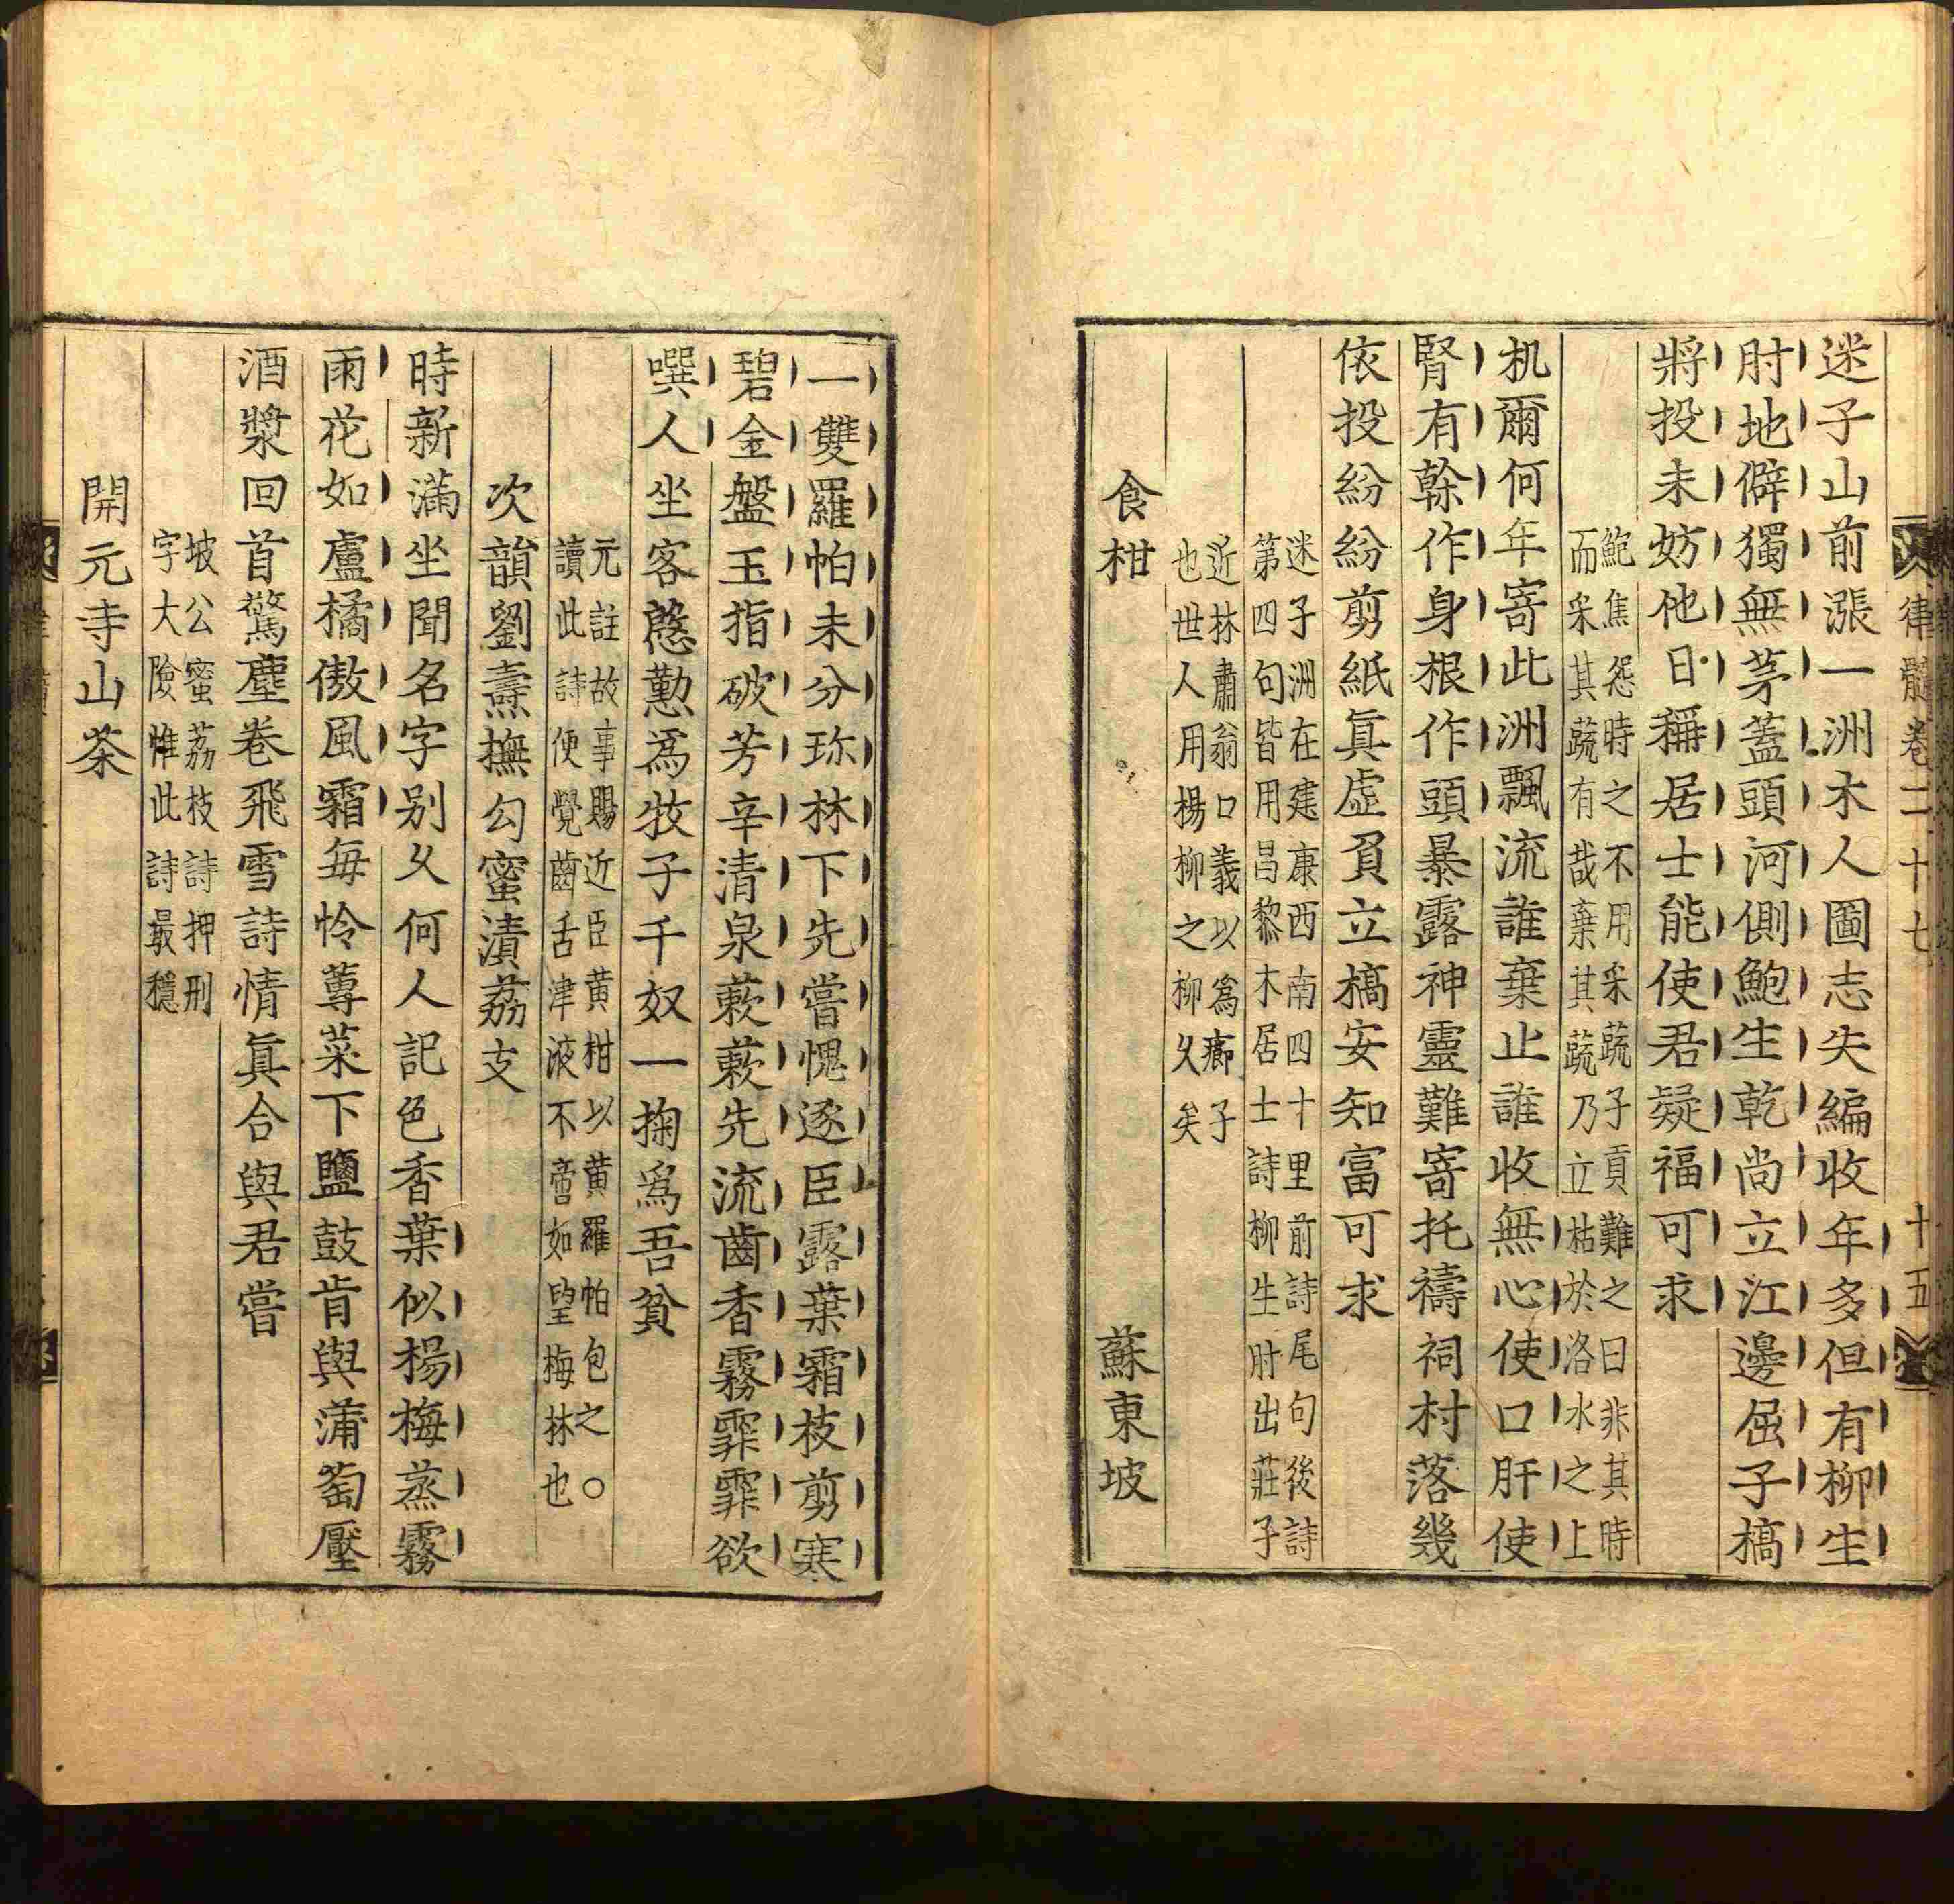 律髓卷二十七　十五
迷子山前漲一洲木人圖志失編收年多但有柳生
肘地僻獨無茅蓋頭河側鮑生乾尚立江邊屈子槁
將投未妨他日稱居士能使君疑福可求
鮑焦怨時之不用采蔬子貢難之曰非其時
而采其蔬有哉棄其蔬乃立枯於洛水之上
机爾何年寄此洲飄流誰棄止誰收無心使口肝使
腎有榦作身根作頭暴露神靈難寄托禱祠村落幾
依投紛紛剪紙眞虚負立槁安知富可求
迷子洲在建康西南四十里前詩尾句後詩
第四句皆用昌黎木居士詩柳生肘出莊子
近林肅翁口義以爲瘤子
也世人用楊柳之柳久矣
食柑　蘇東坡
一雙羅帕未分珎林下先嘗愧逐臣露葉霜枝剪寒
碧金盤玉指破芳辛清泉蔌蔌先流齒香霧霏霏欲
噀人坐客慇懃爲牧子千奴一掬爲吾貧
元註故事賜近臣黄柑以黄羅帕包之○
讀此詩便覺齒舌津液不啻如望梅林也
次韻劉燾撫勾蜜漬荔支
時新滿坐聞名字别久何人記色香葉似楊梅蒸霧
雨花如盧橘傲風霜每怜蓴菜下鹽鼓肯與蒲萄壓
酒漿回首驚塵卷飛雪詩情眞合與君嘗
坡公蜜荔枝詩押刑
字大險惟此詩最穩
開元寺山茶